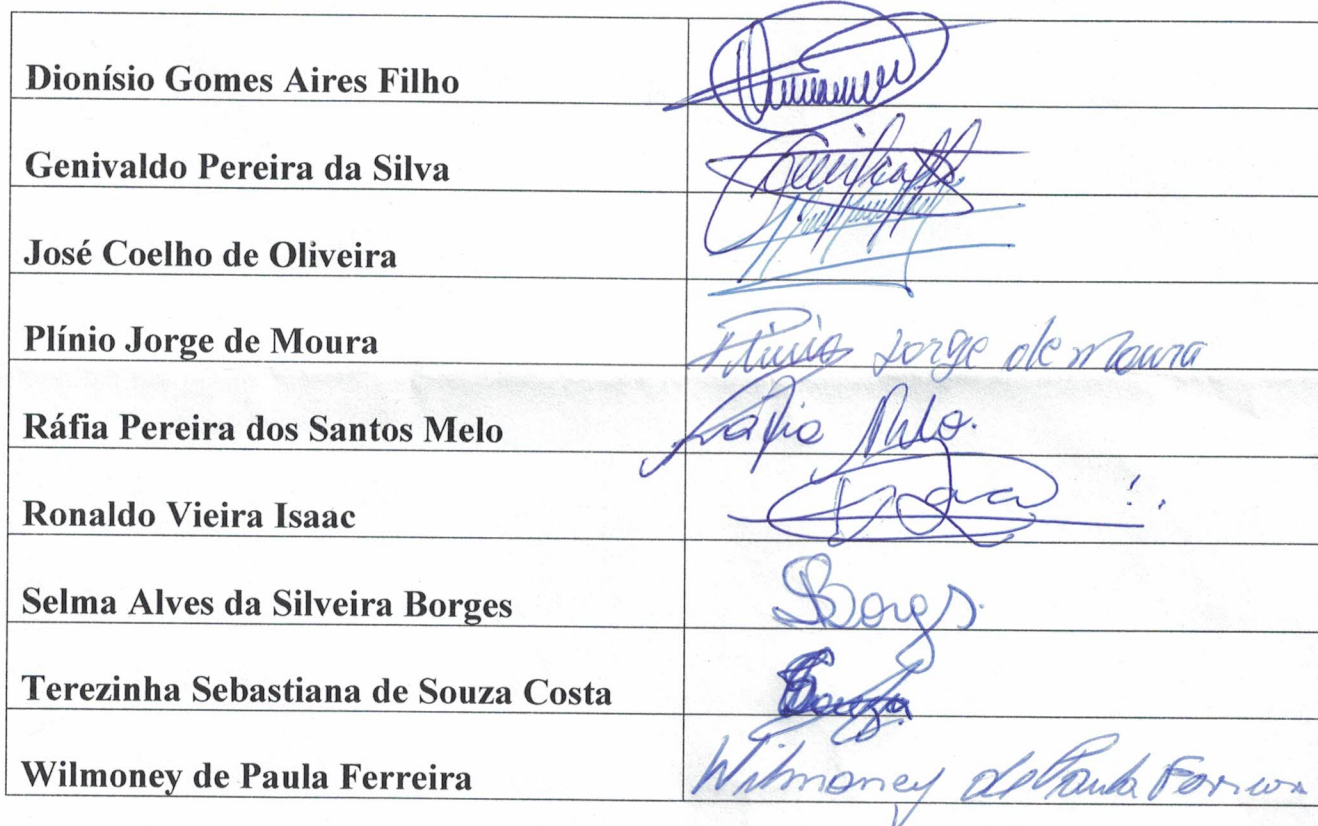 Dionísio Gomes Aires Filho
Genivaldo Pereira da Silva
José Coelho de Oliveira
Plínio Jorge de Moura Plinio Jorge de Moura
Ráfia Pereira dos Santos Melo Ráfia Melo.
Ronaldo Vieira Isaac
Selma Alves da Silveira Borges SBorges
Terezinha Sebastiana de Souza Costa Souza
Wilmoney de Paula Ferreira Wilmoney de Paula Ferreira